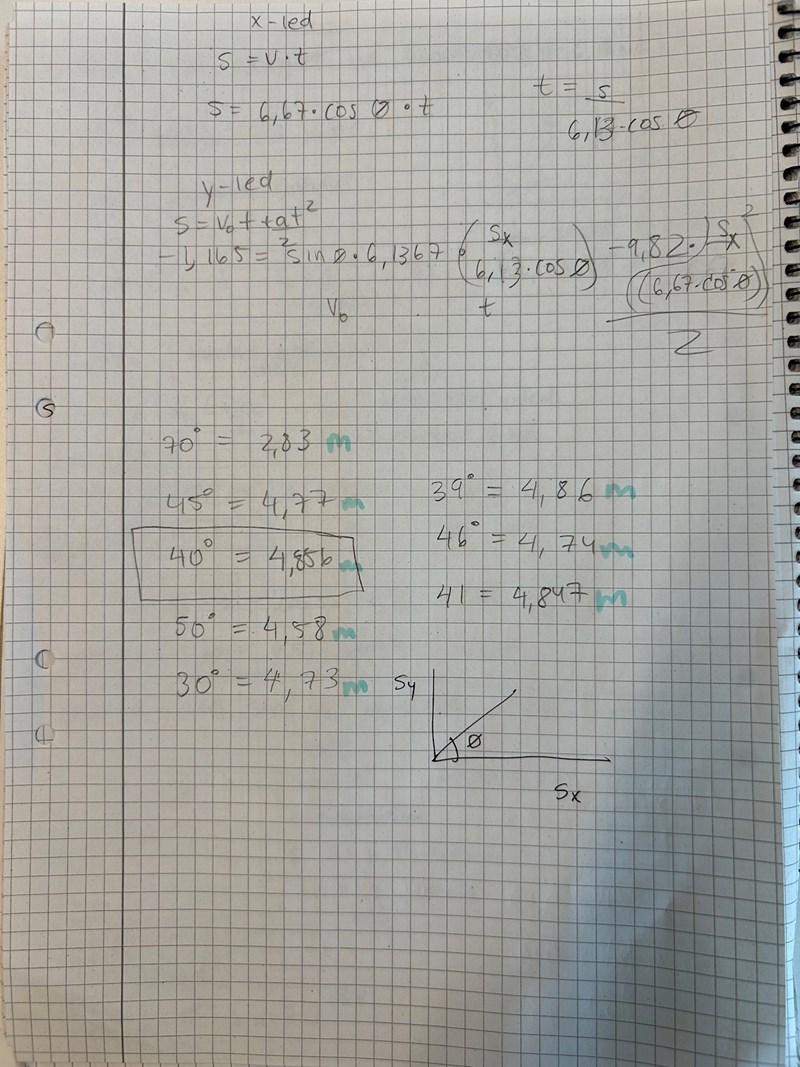 x-led
s = v · t
s = 6,67 · cos Ø · t
t = s / 6,13 · cos Ø
y-led
s = v₀t + at² / 2
-1,165 = sin Ø · 6,1367 · (Sx / 6,13 · cos Ø) -9,82 · (Sx / (6,67 · cos Ø))² / 2
V₀ t
70° = 2,83 m
45° = 4,77 m
40° = 4,856 m
50° = 4,58 m
30° = 4,73 m
39° = 4,86 m
46° = 4,74 m
41 = 4,847 m
Sy
Ø
Sx